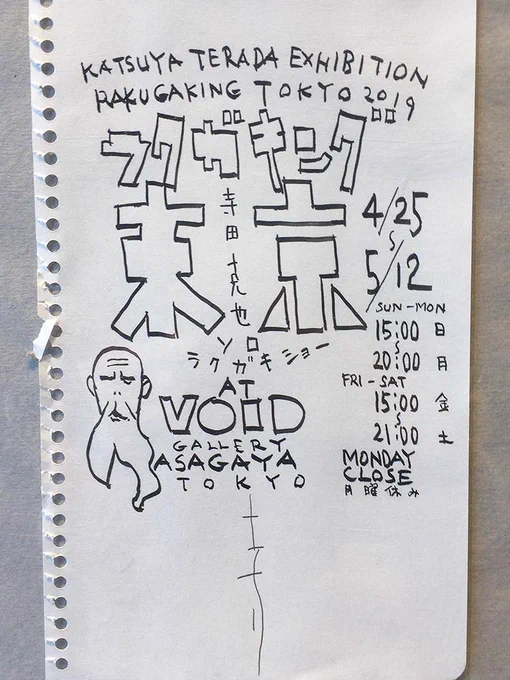 KATSUYA TERADA EXHIBITION
RAKUGAKING TOKYO 2019
ラクガキング
東京
寺田克也
ソロ
ラクガキショー
4/25
~
5/12
SUN-MON
15:00 日
~
20:00 月
FRI-SAT
15:00 金
~
21:00 土
MONDAY
CLOSE
月曜休み
AT
VOID
GALLERY
ASAGAYA
TOKYO